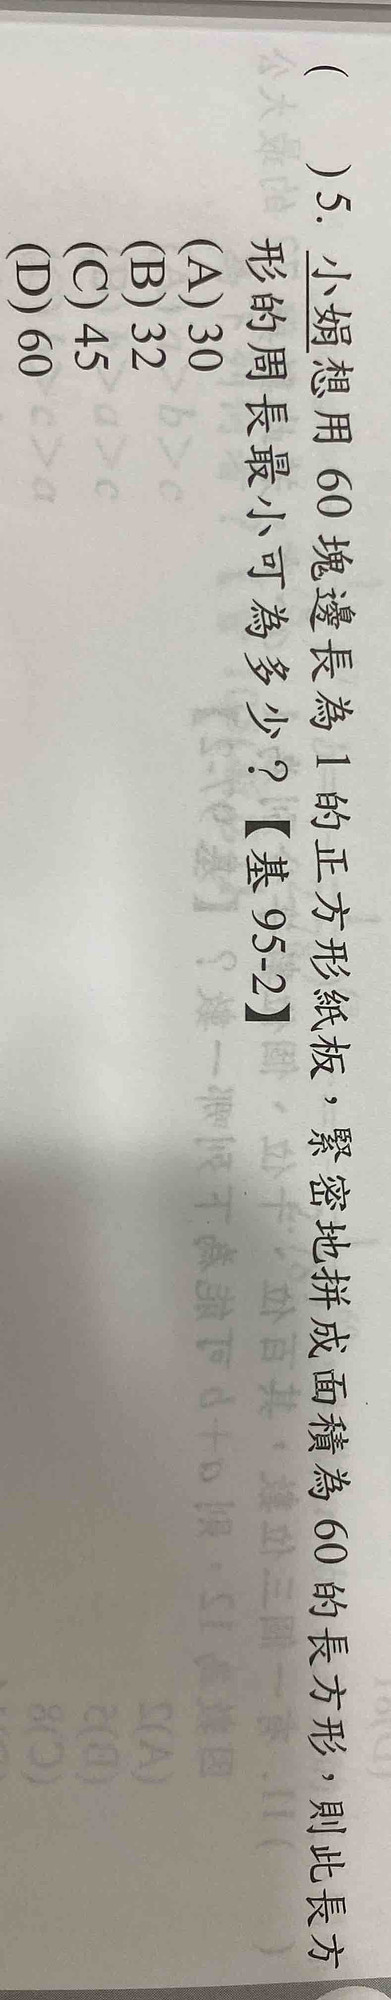 (　　)5. 小娟想用 60 塊邊長為 1 的正方形紙板，緊密地拼成面積為 60 的長方形，則此長方
形的周長最小可為多少？【基 95-2】
(A) 30
(B) 32
(C) 45
(D) 60